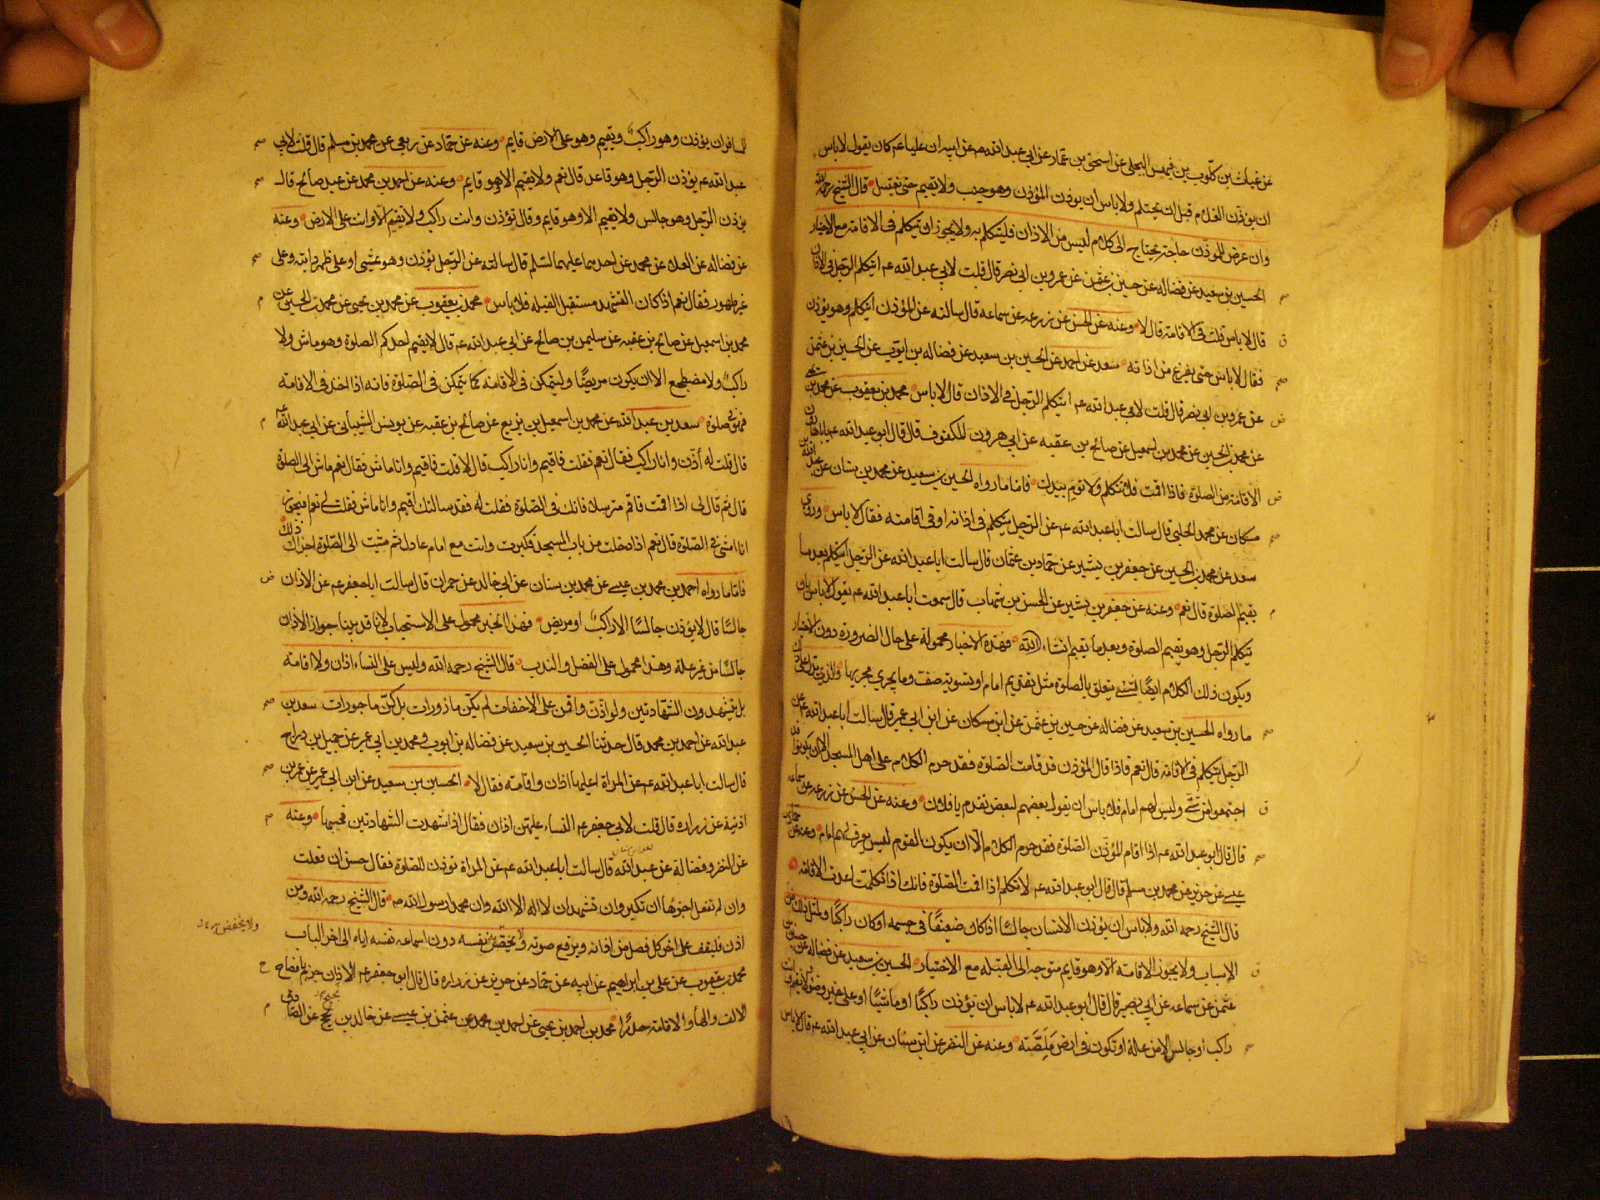 عن غياث بن كلوب بن فيهس البجلي عن اسحق بن عمار عن ابي عبد الله عم عن ابيه ان عليا عم كان يقول لا باس
ان يؤذن الغلام قبل ان يحتلم ولا باس ان يؤذن المؤذن وهو جنب ولا يقيم حتى يغتسل قال الشيخ رحمه الله
وان عرض للمؤذن حاجة يحتاج الى كلام ليس من الاذان فليتكلم به ولا يجوز ان يتكلم في الاقامة مع الاختيار
الحسين بن سعيد عن فضاله عن حسين بن عثمن عن عمرو بن ابي نصر قال قلت لابي عبد الله عم ايتكلم الرجل في الاذان
قال لا باس قلت في الاقامة قال لا وعنه عن الحسن عن زرعه عن سماعه قال سالته عن المؤذن ايتكلم وهو يؤذن
فقال لا باس حتى يفرغ من اذانه سعد عن احمد عن الحسين بن سعيد عن فضاله بن ايوب عن الحسين بن عثمن
عن عمرو بن ابي نصر قال قلت لابي عبد الله عم ايتكلم الرجل في الاذان قال لا باس محمد بن يعقوب عن محمد بن يحيى
عن محمد بن الحسين عن محمد بن اسمعيل عن صالح بن عقبه عن ابي هرون المكفوف قال قال ابو عبد الله عم يابا هارون
الاقامة من الصلوة فاذا اقمت فلا تتكلم ولا تؤم بيدك فاما ما رواه الحسين بن سعيد عن محمد بن سنان عن عبد الله بن
مسكان عن محمد الحلبي قال سالت ابا عبد الله عم عن الرجل يتكلم في اذانه او في اقامته فقال لا باس وروى
سعد عن محمد بن الحسين عن جعفر بن بشير عن حماد بن عثمان قال سالت ابا عبد الله عن الرجل ايتكلم بعد ما
يقيم الصلوة قال نعم وعنه عن جعفر بن بشير عن الحسن بن شهاب قال سمعت ابا عبد الله عم يقول لا باس بان
يتكلم الرجل وهو يقيم الصلوة وبعد ما يقيم ان شاء الله فهذه الاخبار محمولة على حال الضرورة دون الاختيار
ويكون ذلك الكلام ايضا لشيء يتعلق بالصلوة مثل تقديم امام او تسوية صف وما يجري مجريها والذي يدل على ذلك
ما رواه الحسين بن سعيد عن فضاله عن حسين بن عثمن عن ابن مسكان عن ابن ابي عمير قال سالت ابا عبد الله عم عن
الرجل يتكلم في الاقامة قال نعم فاذا قال المؤذن قد قامت الصلوة فقد حرم الكلام على اهل المسجد الا ان يكونوا قد
اجتمعوا من شتى وليس لهم امام فلا باس ان يقول بعضهم لبعض تقدم يا فلان وعنه عن الحسن عن زرعه عن سماعه
قال قال ابو عبد الله عم اذا اقام المؤذن الصلوة فقد حرم الكلام الا ان يكون القوم ليس يعرف لهم امام وعنه عن حماد بن
عيسى عن حريز عن محمد بن مسلم قال قال ابو عبد الله عم لا تتكلم اذا اقمت الصلوة فانك اذا تكلمت اعدت الاقامة
قال الشيخ رحمه الله ولا باس ان يؤذن الانسان جالسا اذا كان ضعيفا في جسمه او كان راكبا ولمثل ذلك من
الاسباب ولا يجوز الاقامة الا وهو قايم متوجه الى القبلة مع الاختيار الحسين بن سعيد عن فضاله عن حسين بن
عثمن عن سماعه عن ابي بصير قال قال ابو عبد الله عم لا باس ان تؤذن راكبا او ماشيا او على غير وضوء ولا تقيم وانت
راكب او جالس الا من علة او تكون في ارض ملصة وعنه عن النضر عن ابن سنان عن ابي عبد الله عم قال لا باس
للمسافر ان يؤذن وهو راكب ويقيم وهو على الارض قايم وعنه عن حماد عن ربعي عن محمد بن مسلم قال قلت لابي
عبد الله عم يؤذن الرجل وهو قاعد قال نعم ولا يقيم الا وهو قايم وعنه عن احمد بن محمد عن عبد صالح قال
يؤذن الرجل وهو جالس ولا يقيم الا وهو قايم وقال تؤذن وانت راكب ولا تقيم الا وانت على الارض وعنه
عن فضاله عن العلاء عن محمد عن احدهما عليهما السلم قال سالته عن الرجل يؤذن وهو يمشي او على ظهر دابته وعلى
غير طهور فقال نعم اذا كان التشهد مستقبل القبلة فلا باس محمد بن يعقوب عن محمد بن يحيى عن محمد بن الحسين عن
محمد بن اسمعيل عن صالح بن عقبه عن سليمن بن صالح عن ابي عبد الله عم قال لا يقيم احدكم الصلوة وهو ماش ولا
راكب ولا مضطجع الا ان يكون مريضا وليتمكن في الاقامة كما يتمكن في الصلوة فانه اذا اخذ في الاقامة
فهو في صلوة سعد بن عبد الله عن محمد بن اسمعيل بن بزيع عن صالح بن عقبه عن يونس الشيباني عن ابي عبد الله عم
قال قلت له أذن وانا راكب فقال نعم فقلت فاقيم وانا راكب قال لا قلت فاقيم وانا ماش فقال نعم ماش الى الصلوة
قال ثم قال لي اذا اقمت فاقم مترسلا فانك في الصلوة فقلت له فقد سالتك اقيم وانا ماش فقلت لي نعم فيجوز
انا امشي في الصلوة قال نعم اذا دخلت من باب المسجد فكبرت وانت مع امام عادل ثم مشيت الى الصلوة اجزاك ذلك
فاما ما رواه احمد بن محمد بن عيسى عن محمد بن سنان عن ابي خالد عن حمران قال سالت ابا جعفر عم عن الاذان
جالسا قال لا يؤذن جالسا الا راكب او مريض فهذا الخبر محمول على الاستحباب لانا قد بينا جواز الاذان
جالسا من غير علة وهذا محمول على الفضل والندب قال الشيخ رحمه الله وليس على النساء اذان ولا اقامة
بل يتشهدن الشهادتين ولو اذن واقمن على الاخفات لم يكن مأزورات بل كن ماجورات سعد بن
عبد الله عن احمد بن محمد قال حدثنا الحسين بن سعيد عن فضاله بن ايوب ومحمد بن ابي عمير عن جميل بن دراج
قال سالت ابا عبد الله عم عن المراة اعليها اذان واقامة فقال لا الحسين بن سعيد عن ابن ابي عمير عن عمر بن
اذينة عن زراره قال قلت لابي جعفر عم النساء عليهن اذان فقال اذا شهدت الشهادتين فحسبها وعنه
عن النضر وفضالة عن عبد الله قال سالت ابا عبد الله عم عن المراة تؤذن للصلوة فقال حسن ان فعلت
وان لم تفعل اجزأها ان تكبر وان تشهد ان لا اله الا الله وان محمدا رسول الله صه قال الشيخ رحمه الله ومن
اذن فليقف على اخر كل فصل من اذانه ويرفع صوته ولا يخفض نفسه دون اسماعه نفسه اياه الى اخر الباب
ولا يخفض به
محمد بن يعقوب عن علي بن ابراهيم عن ابيه عن حماد عن حريز عن زراره قال قال ابو جعفر عم الاذان جزم بافصاح
الالف والهاء والاقامة حدرا محمد بن احمد بن يحيى عن احمد بن محمد عن عثمن بن عيسى عن خالد بن نجيح عن الصادق